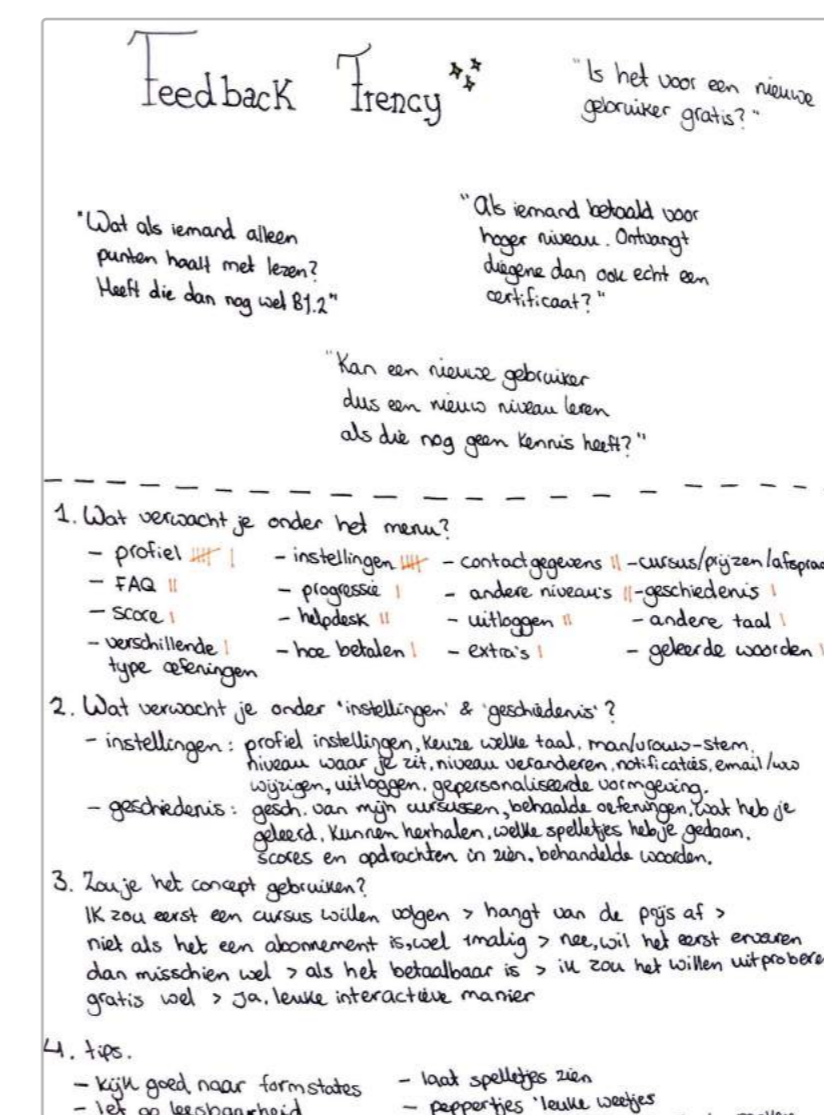 Feedback Trency
"Is het voor een nieuwe
gebruiker gratis?"
"Wat als iemand alleen
punten haalt met lezen?
Heeft die dan nog wel B1.2"
"Als iemand betaald voor
hoger niveau. Ontvangt
diegene dan ook echt een
certificaat?"
"Kan een nieuwe gebruiker
dus een nieuw niveau leren
als die nog geen kennis heeft?"
1. Wat verwacht je onder het menu?
- profiel - instellingen - contactgegevens - cursus/prijzen/afspraa
- FAQ - progressie - andere niveau's - geschiedenis
- score - helpdesk - uitloggen - andere taal
- verschillende - hoe betalen - extra's - geleerde woorden
type oefeningen
2. Wat verwacht je onder 'instellingen' & 'geschiedenis'?
- instellingen: profiel instellingen, keuze welke taal, man/vrouw-stem,
niveau waar je zit, niveau veranderen, notificaties, email/ww
wijzigen, uitloggen, gepersonaliseerde vormgeving.
- geschiedenis: gesch. van mijn cursussen, behaalde oefeningen, wat heb je
geleerd, kunnen herhalen, welke spelletjes heb je gedaan,
scores en opdrachten in zien, behandelde woorden.
3. Zou je het concept gebruiken?
Ik zou eerst een cursus willen volgen > hangt van de prijs af >
niet als het een abonnement is, wel 1malig > nee, wil het eerst ervaren
dan misschien wel > als het betaalbaar is > ik zou het willen uitprobere
gratis wel > Ja, leuke interactieve manier
4. tips.
- kijk goed naar formstates - laat spelletjes zien
- let op leesbaarheid - peppertjes 'leuke weetjes